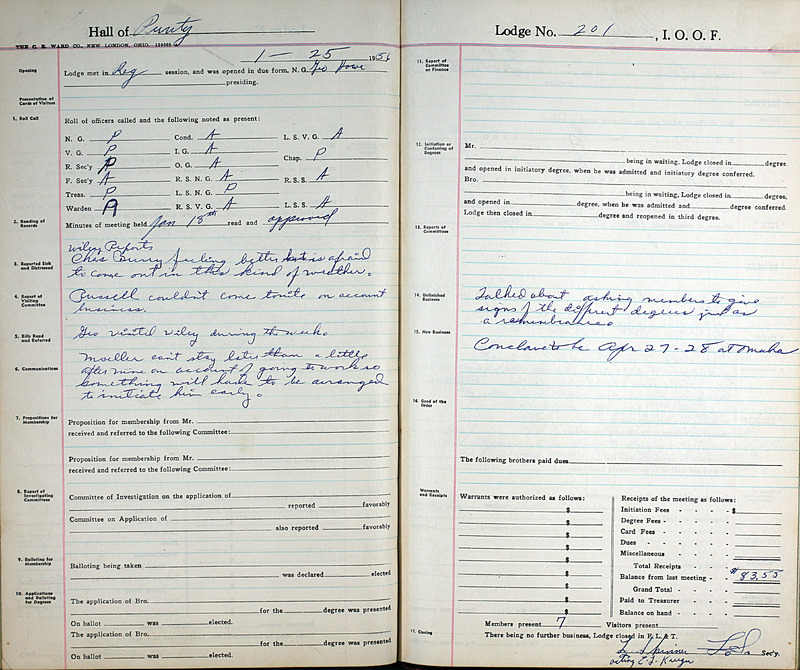 Hall of Purity
THE C. E. WARD CO., NEW LONDON, OHIO.
1 - 25 1956
Opening
Lodge met in Reg session, and was opened in due form, N. G. Geo Howe
presiding.
Presentation of Cards of Visitors
1. Roll Call
Roll of officers called and the following noted as present:
N. G. P Cond. A L. S. V. G. A
V. G. P I. G. A Chap. P
R. Sec'y A O. G. A
F. Sec'y A R. S. N. G. A R. S. S. A
Treas. P L. S. N. G. P
Warden A R. S. V. G. A L. S. S. A
2. Reading of Records
Minutes of meeting held Jan 18th read and approved
Wiley Reports
3. Reported Sick and Distressed
Chas Curry feeling better but is afraid
to come out in this kind of weather.
4. Report of Visiting Committee
Russell couldn't come tonite on account
business.
5. Bills Read and Referred
Geo visited Wiley during the week.
6. Communications
Moeller can't stay later than a little
after nine on account of going to work so
something will have to be arranged
to initiate him early.
7. Propositions for Membership
Proposition for membership from Mr.
received and referred to the following Committee:
Proposition for membership from Mr.
received and referred to the following Committee:
8. Report of Investigating Committees
Committee of Investigation on the application of
reported favorably
Committee on Application of
also reported favorably
9. Balloting for Membership
Balloting being taken
was declared elected
10. Applications and Balloting for Degrees
The application of Bro.
for the degree was presented
On ballot was elected.
The application of Bro.
for the degree was presented
On ballot was elected.
Lodge No. 201, I. O. O. F.
11. Report of Committee on Finance
12. Initiation or Conferring of Degrees
Mr.
being in waiting, Lodge closed in degree,
and opened in initiatory degree, when he was admitted and initiatory degree conferred.
Bro.
being in waiting, Lodge closed in degree,
and opened in degree, when he was admitted and degree conferred.
Lodge then closed in degree and reopened in third degree.
13. Reports of Committees
14. Unfinished Business
Talked about asking members to give
signs of the different degrees just as
a remembrance.
15. New Business
Conclave to be Apr 27-28 at Omaha
16. Good of the Order
The following brothers paid dues
Warrants and Receipts
Warrants were authorized as follows:
$
$
$
$
$
$
$
$
Receipts of the meeting as follows:
Initiation Fees $
Degree Fees
Card Fees
Dues
Miscellaneous
Total Receipts
Balance from last meeting $83.55
Grand Total
Paid to Treasurer
Balance on hand
Members present 7 Visitors present
17. Closing
There being no further business, Lodge closed in F., L. & T.
L. Spinner Sec'y.
acting